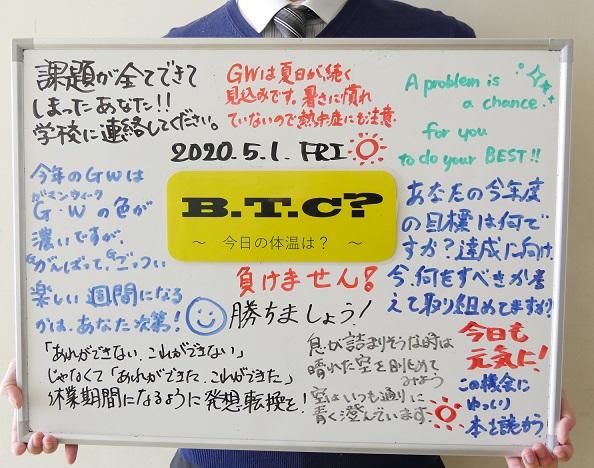 課題が全てできて
しまったあなた!!
学校に連絡してください。
GWは夏日が、続く
見込みです。暑さに慣れ
ていないので熱中症にも注意
A problem is
a chance
for you
to do your BEST!!
2020.5.1. FRI
B.T.C?
～ 今日の体温は? ～
今年のGWは
ガマンウィーク
G・Wの色が
濃いですが、
がんばって、すごい
楽しい週間になる
かは、あなた次第!
あなたの今年度
の目標は何で
すか?達成に向け、
今、何をすべきか考
えて取り組めてますか?
負けません!
勝ちましょう!
「あれができない、これができない」
じゃなくて「あれができた、これができた」
休業期間になるように発想転換を!
息が詰まりそうな時は
晴れた空を眺めて
みよう
空はいつも通りに
青く澄んでいます。
今日も
元気に!
この機会に
ゆっくり
本を読もう